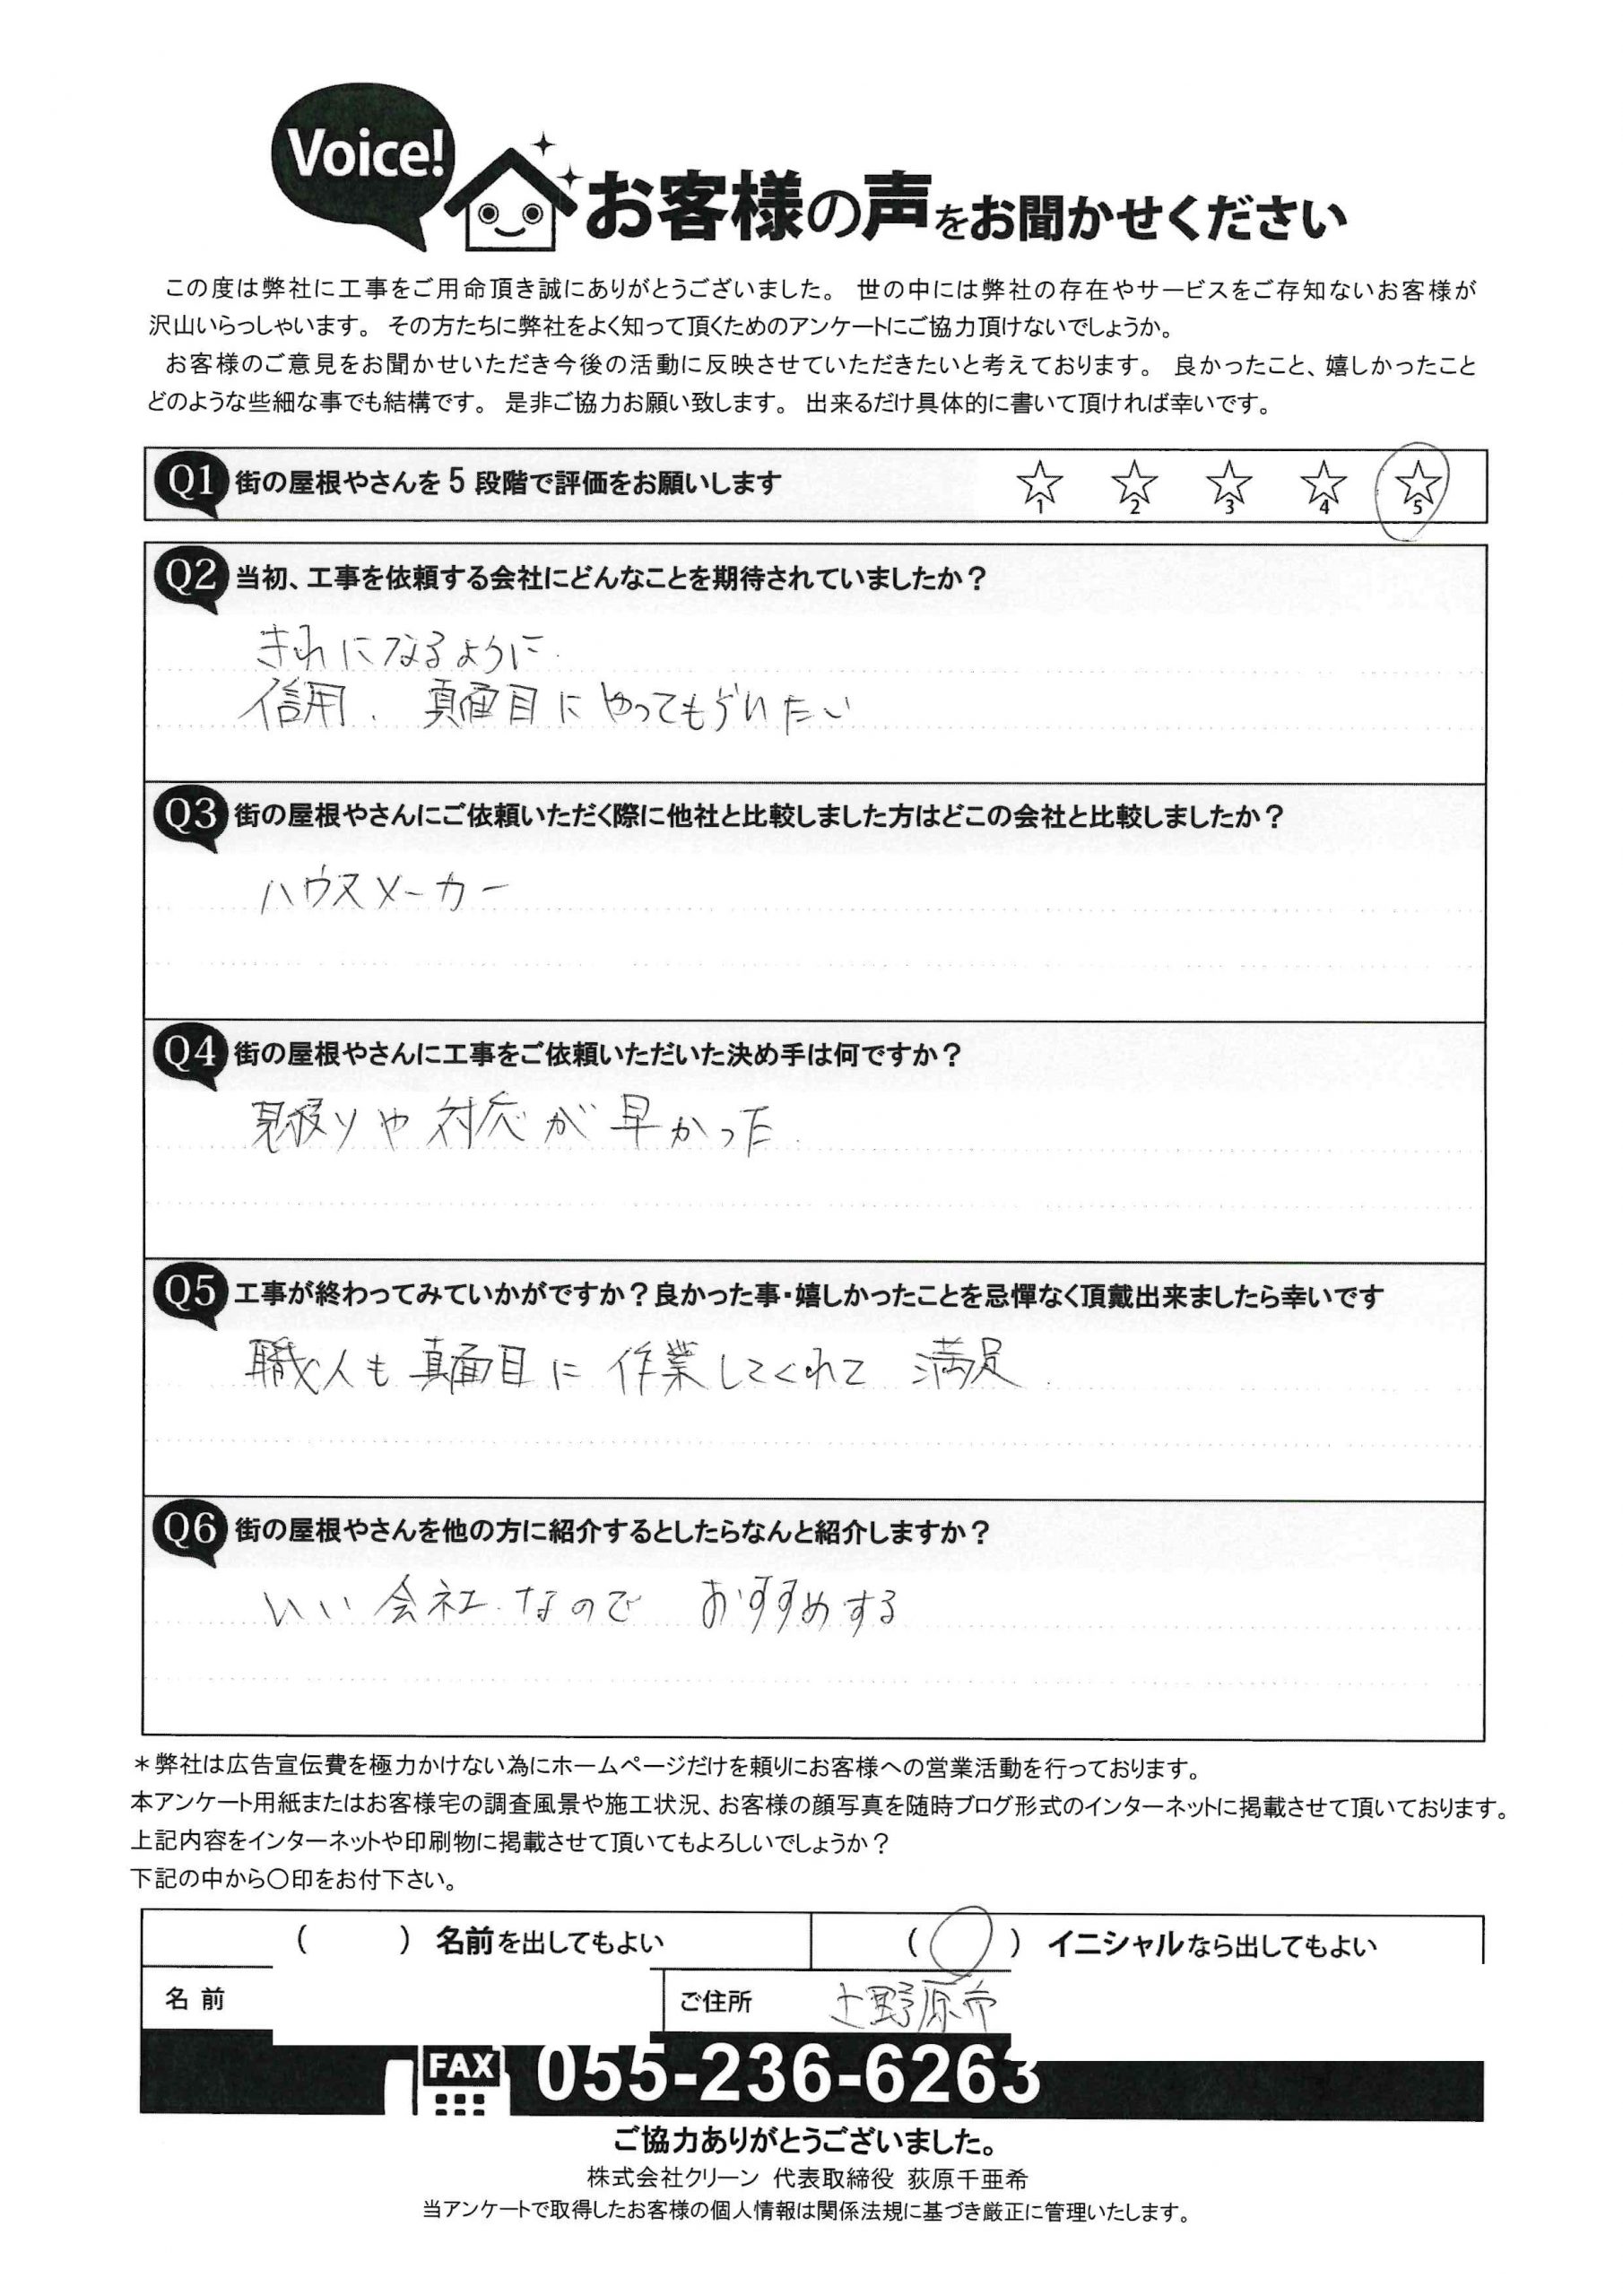 Voice!
お客様の声をお聞かせください
この度は弊社に工事をご用命頂き誠にありがとうございました。 世の中には弊社の存在やサービスをご存知ないお客様が
沢山いらっしゃいます。 その方たちに弊社をよく知って頂くためのアンケートにご協力頂けないでしょうか。
お客様のご意見をお聞かせいただき今後の活動に反映させていただきたいと考えております。 良かったこと、嬉しかったこと
どのような些細な事でも結構です。 是非ご協力お願い致します。 出来るだけ具体的に書いて頂ければ幸いです。
Q1 街の屋根やさんを5段階で評価をお願いします ☆1 ☆2 ☆3 ☆4 ☆5
Q2 当初、工事を依頼する会社にどんなことを期待されていましたか?
きれになるように
信用、真面目にやってもらいたい
Q3 街の屋根やさんにご依頼いただく際に他社と比較しました方はどこの会社と比較しましたか?
ハウスメーカー
Q4 街の屋根やさんに工事をご依頼いただいた決め手は何ですか?
見積りや対応が早かった
Q5 工事が終わってみていかがですか?良かった事・嬉しかったことを忌憚なく頂戴出来ましたら幸いです
職人も真面目に作業してくれて 満足
Q6 街の屋根やさんを他の方に紹介するとしたらなんと紹介しますか?
いい会社なので おすすめする
*弊社は広告宣伝費を極力かけない為にホームページだけを頼りにお客様への営業活動を行っております。
本アンケート用紙またはお客様宅の調査風景や施工状況、お客様の顔写真を随時ブログ形式のインターネットに掲載させて頂いております。
上記内容をインターネットや印刷物に掲載させて頂いてもよろしいでしょうか?
下記の中から〇印をお付下さい。
( ) 名前を出してもよい (〇) イニシャルなら出してもよい
名前 ご住所 上野原市
FAX 055-236-6263
ご協力ありがとうございました。
株式会社クリーン 代表取締役 荻原千亜希
当アンケートで取得したお客様の個人情報は関係法規に基づき厳正に管理いたします。